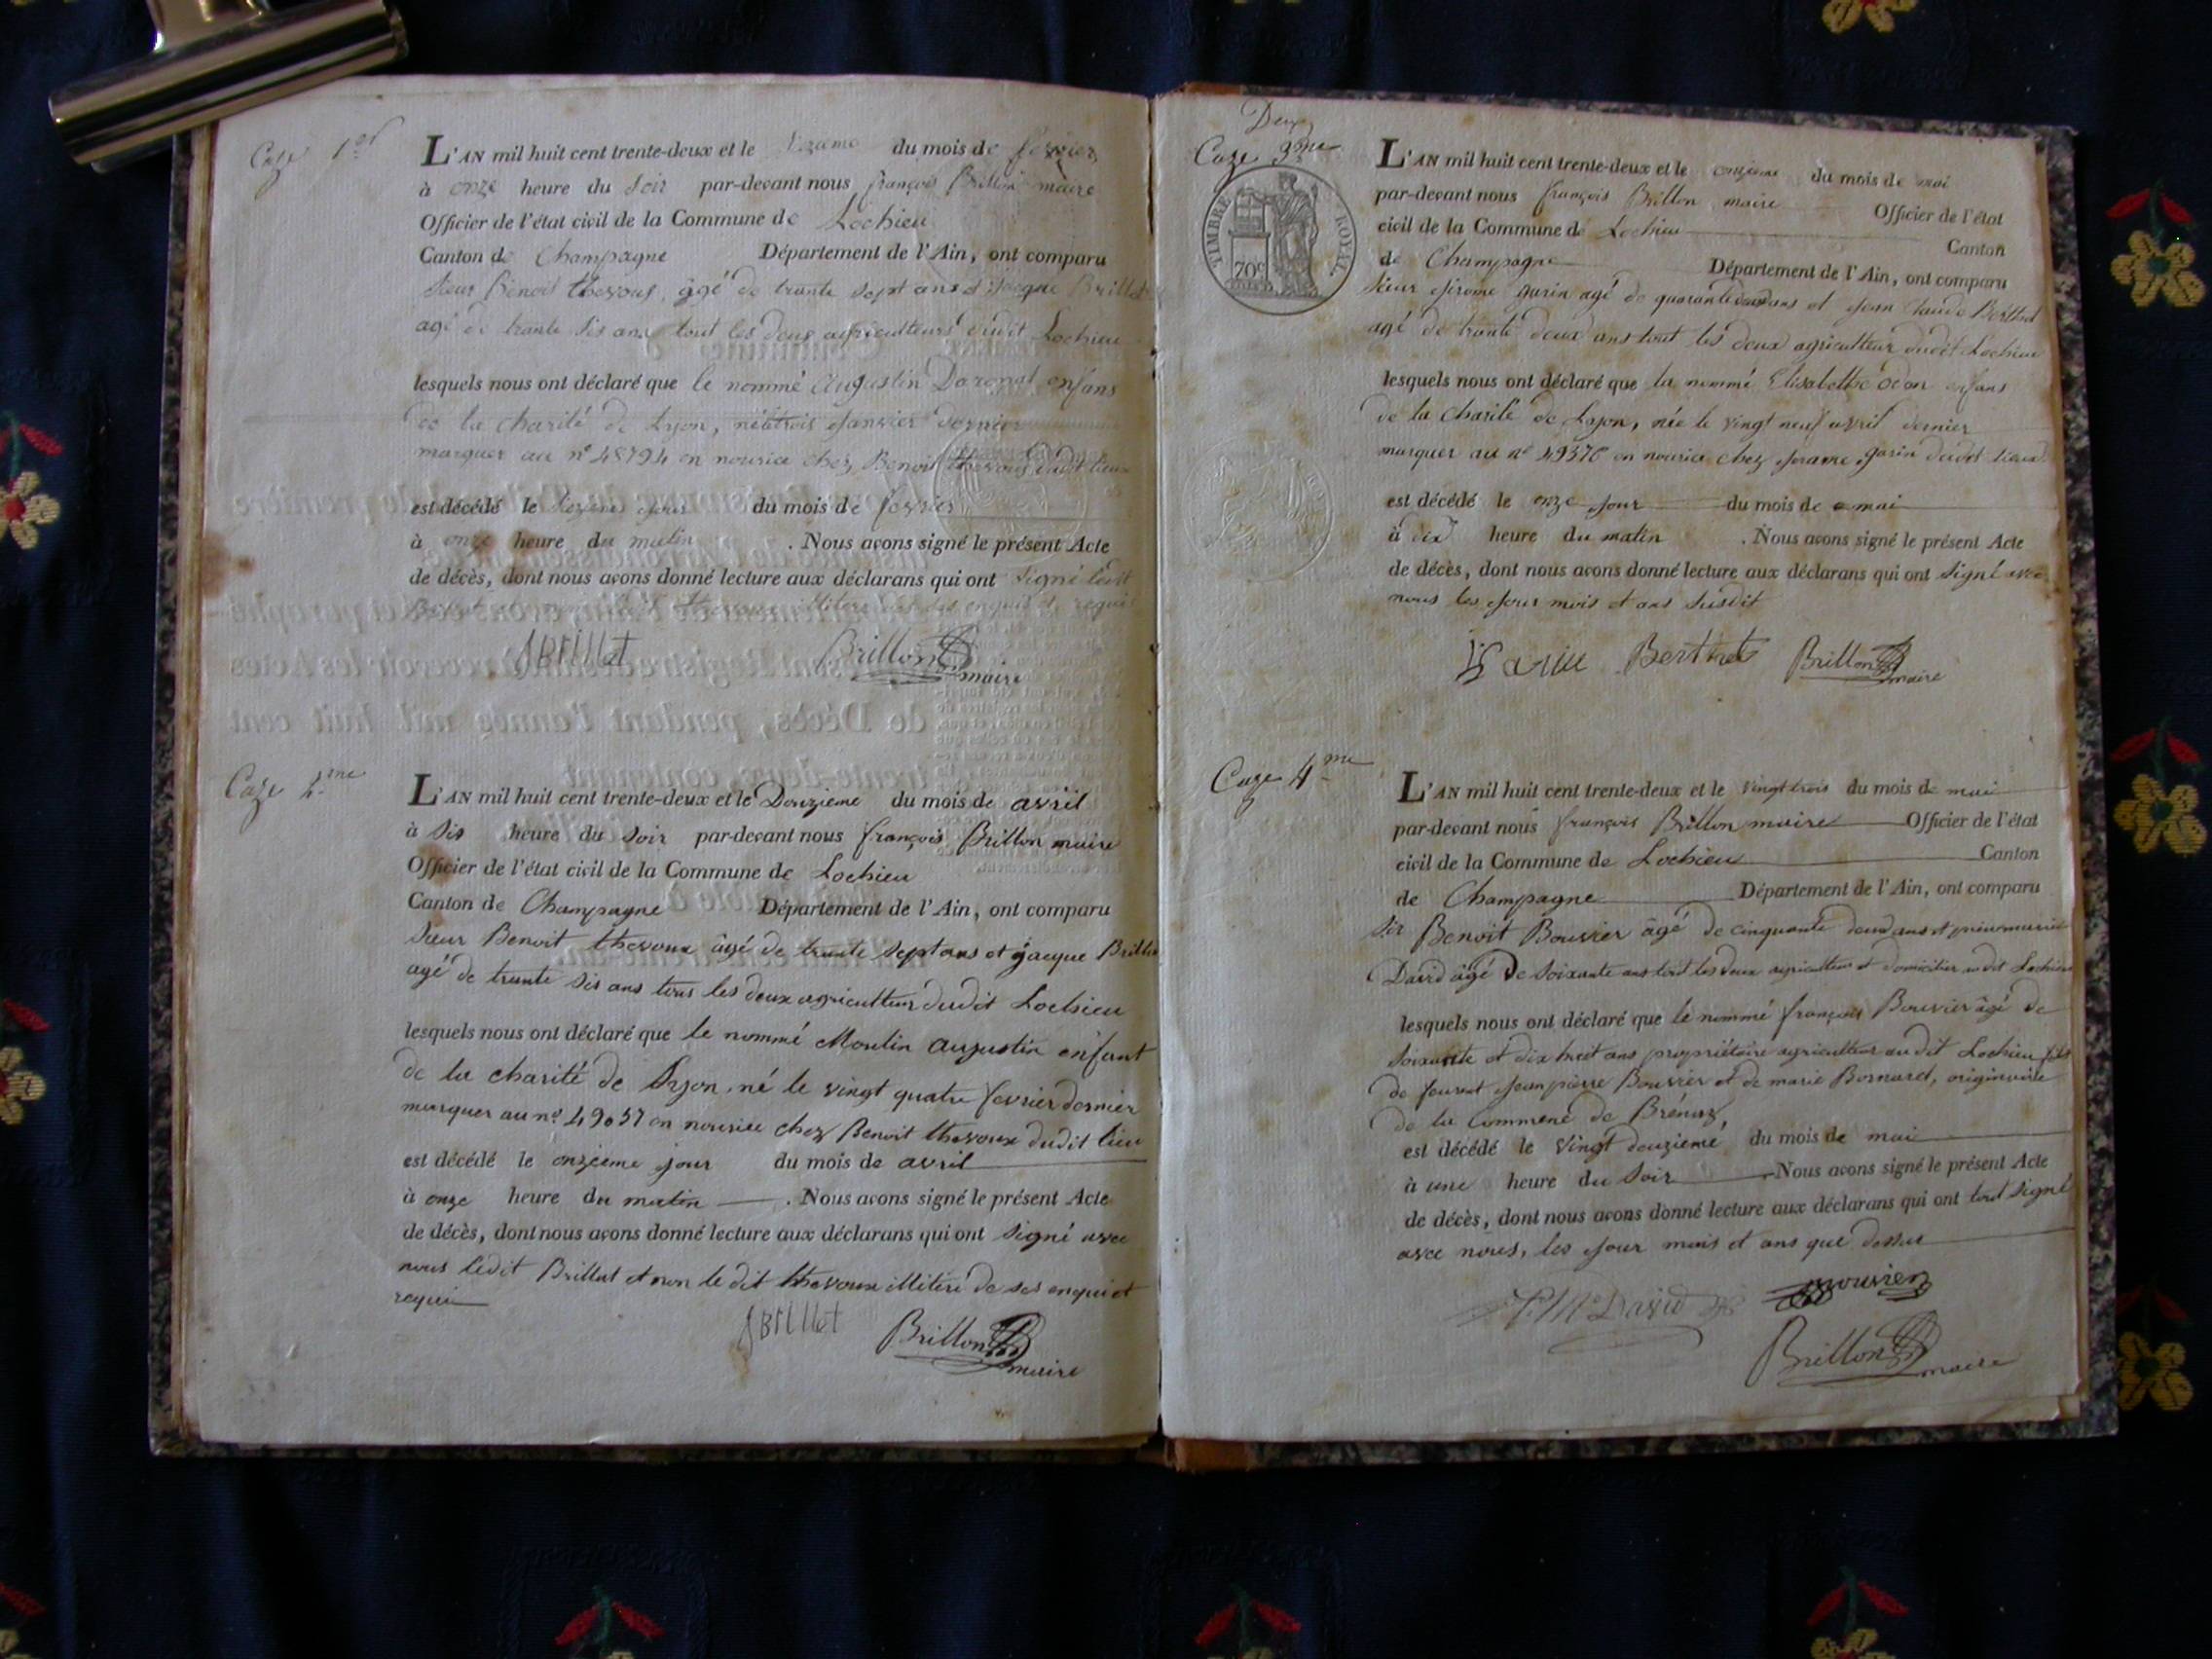 Caze 1er
L'AN mil huit cent trente-deux et le du mois de fevrier
à onze heure du soir par-devant nous françois Brillon maire
Officier de l'état civil de la Commune de Lochieu
Canton de Champagne Département de l'Ain, ont comparu
sieur Benoit thevoux, âgé de trante sept ans et jacque Brillat
agé de trante sis ans tout les deux agriculteurs dudit Lochieu
lesquels nous ont déclaré que le nommé Augustin enfans
de la charité de Lyon, né le trois janvier dernier
marquer au nº 48794 en nourice chez Benoit thevoux dudit lieu
est décédé le jour du mois de fevrier
à onze heure du matin . Nous avons signé le présent Acte
de décès, dont nous avons donné lecture aux déclarans qui ont signé ledit
Brillat thevoux illitere de ses enquit et requi
JBrillat Brillon maire
Caze 2me
L'AN mil huit cent trente-deux et le Douzieme du mois de avril
à sis heure du soir par-devant nous françois Brillon maire
Officier de l'état civil de la Commune de Lochieu
Canton de Champagne Département de l'Ain, ont comparu
sieur Benoit thevoux âgé de trante sept ans et jacque Brillat
agé de trante sis ans tous les deux agriculteur dudit Lochieu
lesquels nous ont déclaré que le nommé Moulin augustin enfant
de la charité de Lyon, né le vingt quatre fevrier dernier
marquer au nº 49057 en nourice chez Benoit thevoux dudit lieu
est décédé le onzieme jour du mois de avril
à onze heure du matin . Nous avons signé le présent Acte
de décès, dont nous avons donné lecture aux déclarans qui ont signé avec
nous ledit Brillat et non le dit thevoux illiteré de ses enqui et
requi
JBrillat Brillon maire
Deux
Caze 3me
TIMBRE ROYAL
70c
L'AN mil huit cent trente-deux et le onzieme du mois de mai
par-devant nous françois Brillon maire Officier de l'état
civil de la Commune de Lochieu Canton
de Champagne Département de l'Ain, ont comparu
sieur jerome garin agé de quarante deux ans et jean claude Berthet
agé de trante deux ans tout les deux agriculteur dudit Lochieu
lesquels nous ont déclaré que la nommé Elisabethe enfans
de la charité de Lyon, née le vingt neuf avril dernier
marquer au nº 49376 en nourice chez jerome garin dudit lieux
est décédé le onze jour du mois de mai
à dix heure du matin . Nous avons signé le présent Acte
de décès, dont nous avons donné lecture aux déclarans qui ont signé avec
nous les jour mois et ans susdit
Garin Berthet Brillon maire
Caze 4me
L'AN mil huit cent trente-deux et le vingt trois du mois de mai
par-devant nous françois Brillon maire Officier de l'état
civil de la Commune de Lochieu Canton
de Champagne Département de l'Ain, ont comparu
sir Benoit Bouvier âgé de cinquante deux ans et
David âgé de soixante ans tout les deux agriculteur et domicilier audit Lochieu
lesquels nous ont déclaré que le nommé françois Bouvier âgé de
soixante et dix huit ans propriétaire agriculteur au dit Lochieu fils
de feurent jean pierre Bouvier et de marie Bornaret, originaire
de la commene de Brénaz
est décédé le vingt deuzieme du mois de mai
à une heure du soir . Nous avons signé le présent Acte
de décès, dont nous avons donné lecture aux déclarans qui ont tout signé
avec nous, les jour mois et ans que dessus
David Bouvier
Brillon maire